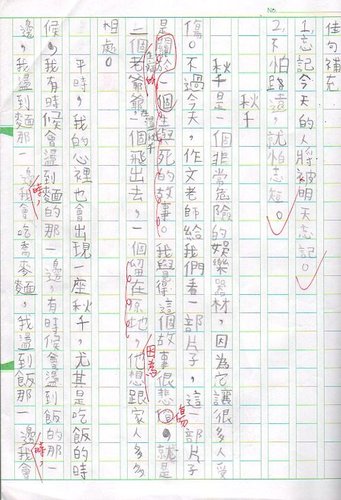 佳句補充
1.忘記今天的人將被明天忘記。
2.不怕路遠，就怕志短。
秋千
秋千是一個非常危險的娛樂器材，因為它讓很多人受
傷。不過今天，作文老師給我們看一部片子，這一部片子
是關於一個生與死的故事。我覺得這個故事很悲傷，就是
二個老爺爺，一個飛出去，一個留在原地，因為他想跟家人多多
相處。
平時，我的心裡也會出現一座秋千，尤其是吃飯的時
候，我有時候會盪到麵的那一邊，有時候會盪到飯的那一
邊，我盪到麵那一邊時，我會吃蕎麥麵，我盪到飯那一邊時，我會